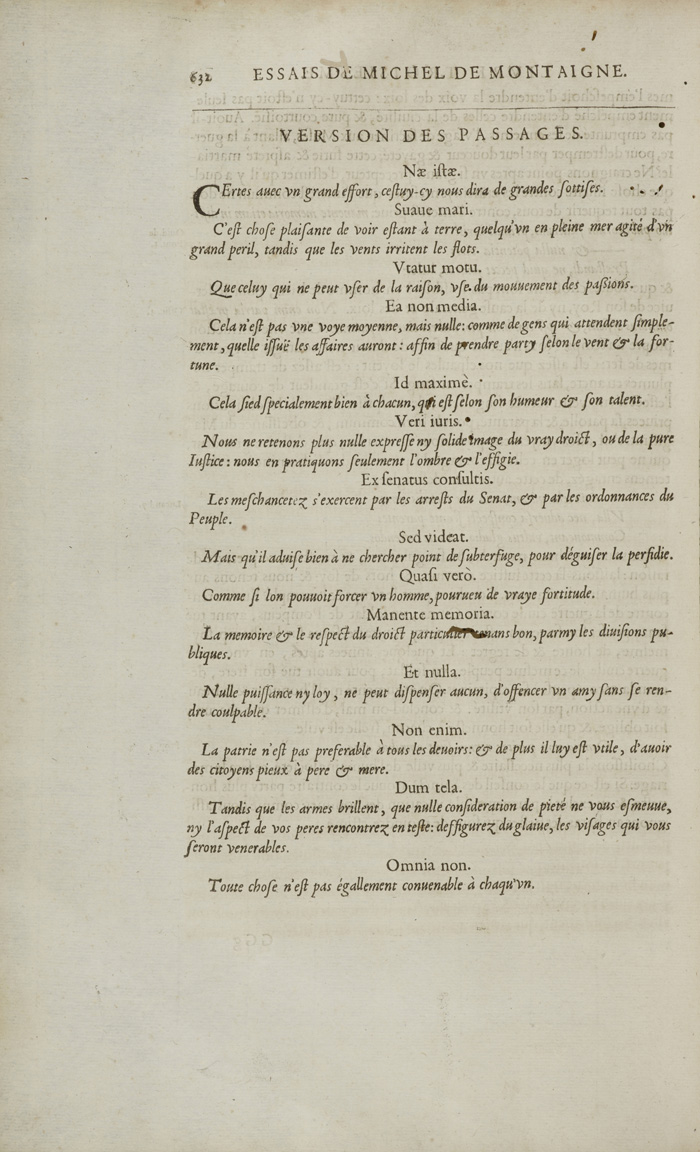 632 ESSAIS DE MICHEL DE MONTAIGNE.
VERSION DES PASSAGES.
Næ istæ.
CErtes auec vn grand effort, cestuy-cy nous dira de grandes sottises.
Suaue mari.
C'est chose plaisante de voir estant à terre, quelqu'vn en pleine mer agité d'vn
grand peril, tandis que les vents irritent les flots.
Vtatur motu.
Que celuy qui ne peut vser de la raison, vse du mouuement des passions.
Ea non media.
Cela n'est pas vne voye moyenne, mais nulle: comme de gens qui attendent simple-
ment, quelle issuë les affaires auront: affin de prendre party selon le vent & la for-
tune.
Id maximè.
Cela sied specialement bien à chacun, qui est selon son humeur & son talent.
Veri iuris.
Nous ne retenons plus nulle expresse ny solide image du vray droict, ou de la pure
Iustice: nous en pratiquons seulement l'ombre & l'effigie.
Ex senatus consultis.
Les meschancetez s'exercent par les arrests du Senat, & par les ordonnances du
Peuple.
Sed videat.
Mais qu'il aduise bien à ne chercher point de subterfuge, pour déguiser la perfidie.
Quasi verò.
Comme si lon pouuoit forcer vn homme, pourueu de vraye fortitude.
Manente memoria.
La memoire & le respect du droict particulier bon, parmy les diuisions pu-
bliques.
Et nulla.
Nulle puissance ny loy, ne peut dispenser aucun, d'offencer vn amy sans se ren-
dre coulpable.
Non enim.
La patrie n'est pas preferable à tous les deuoirs: & de plus il luy est vtile, d'auoir
des citoyens pieux à pere & mere.
Dum tela.
Tandis que les armes brillent, que nulle consideration de pieté ne vous esmeuue,
ny l'aspect de vos peres rencontrez en teste: deffigurez du glaiue, les visages qui vous
seront venerables.
Omnia non.
Toute chose n'est pas égallement conuenable à chaqu'vn.